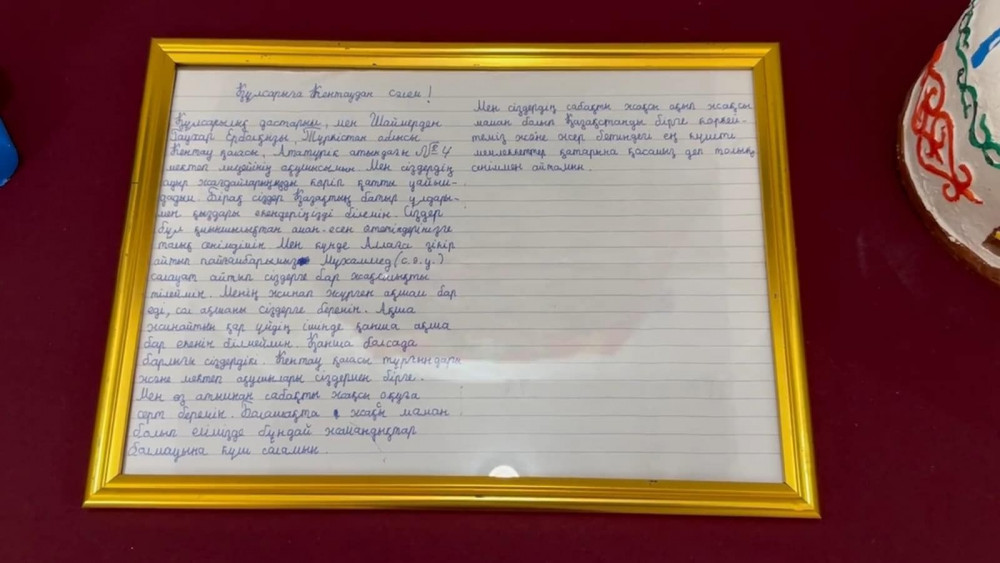 Құлсарыға Кентаудан сәлем!
Құлсарының дастарқы, мен Шаймерден
Гаухар Ербақызы, Түркістан облысы
Кентау қаласы, Ататүрік атындағы №4
мектеп лицейінің оқушысымын. Мен сіздердің
ауыр жағдайларыңызды көріп қатты уайым-
дадым. Бірақ сіздер Қазақтың батыр ұлдары-
мен қыздары екендеріңізді білемін. Сіздер
бұл қиыншылықтан аман-есен өтетіндеріңізге
толық сенімдімін. Мен күнде Аллаға зікір
айтып пайғамбарымыз Мұхаммед (с.ғ.у.)
салауат айтып сіздерге бар жақсылықты
тілеймін. Менің жинап жүрген ақшам бар
еді, сол ақшаны сіздерге беремін. Ақша
жинайтын қар үйдің ішінде қанша ақша
бар екенін білмеймін. Қанша болсада
барлығы сіздердікі. Кентау қаласы тұрғындары
және мектеп оқушылары сіздермен бірге.
Мен өз атымнан сабақты жақсы оқуға
серт беремін. Болашақта жақсы маман
болып елімізде бұндай жамандықтар
болмауына күш саламын.
Мен сіздердің сабақты жақсы оқып жақсы
маман болып Қазақстанды бірге көркей-
теміз және жер бетіндегі ең күшті
мемлекеттер қатарына қосамыз деп толық
сеніммен айтамын.